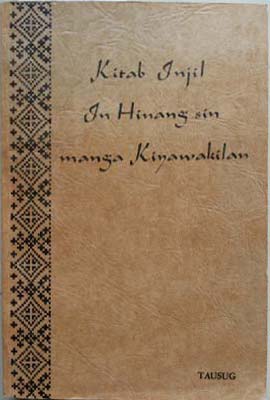 Kitab Injil
In Hinang sin
manga Kiyawakilan
TAUSUG